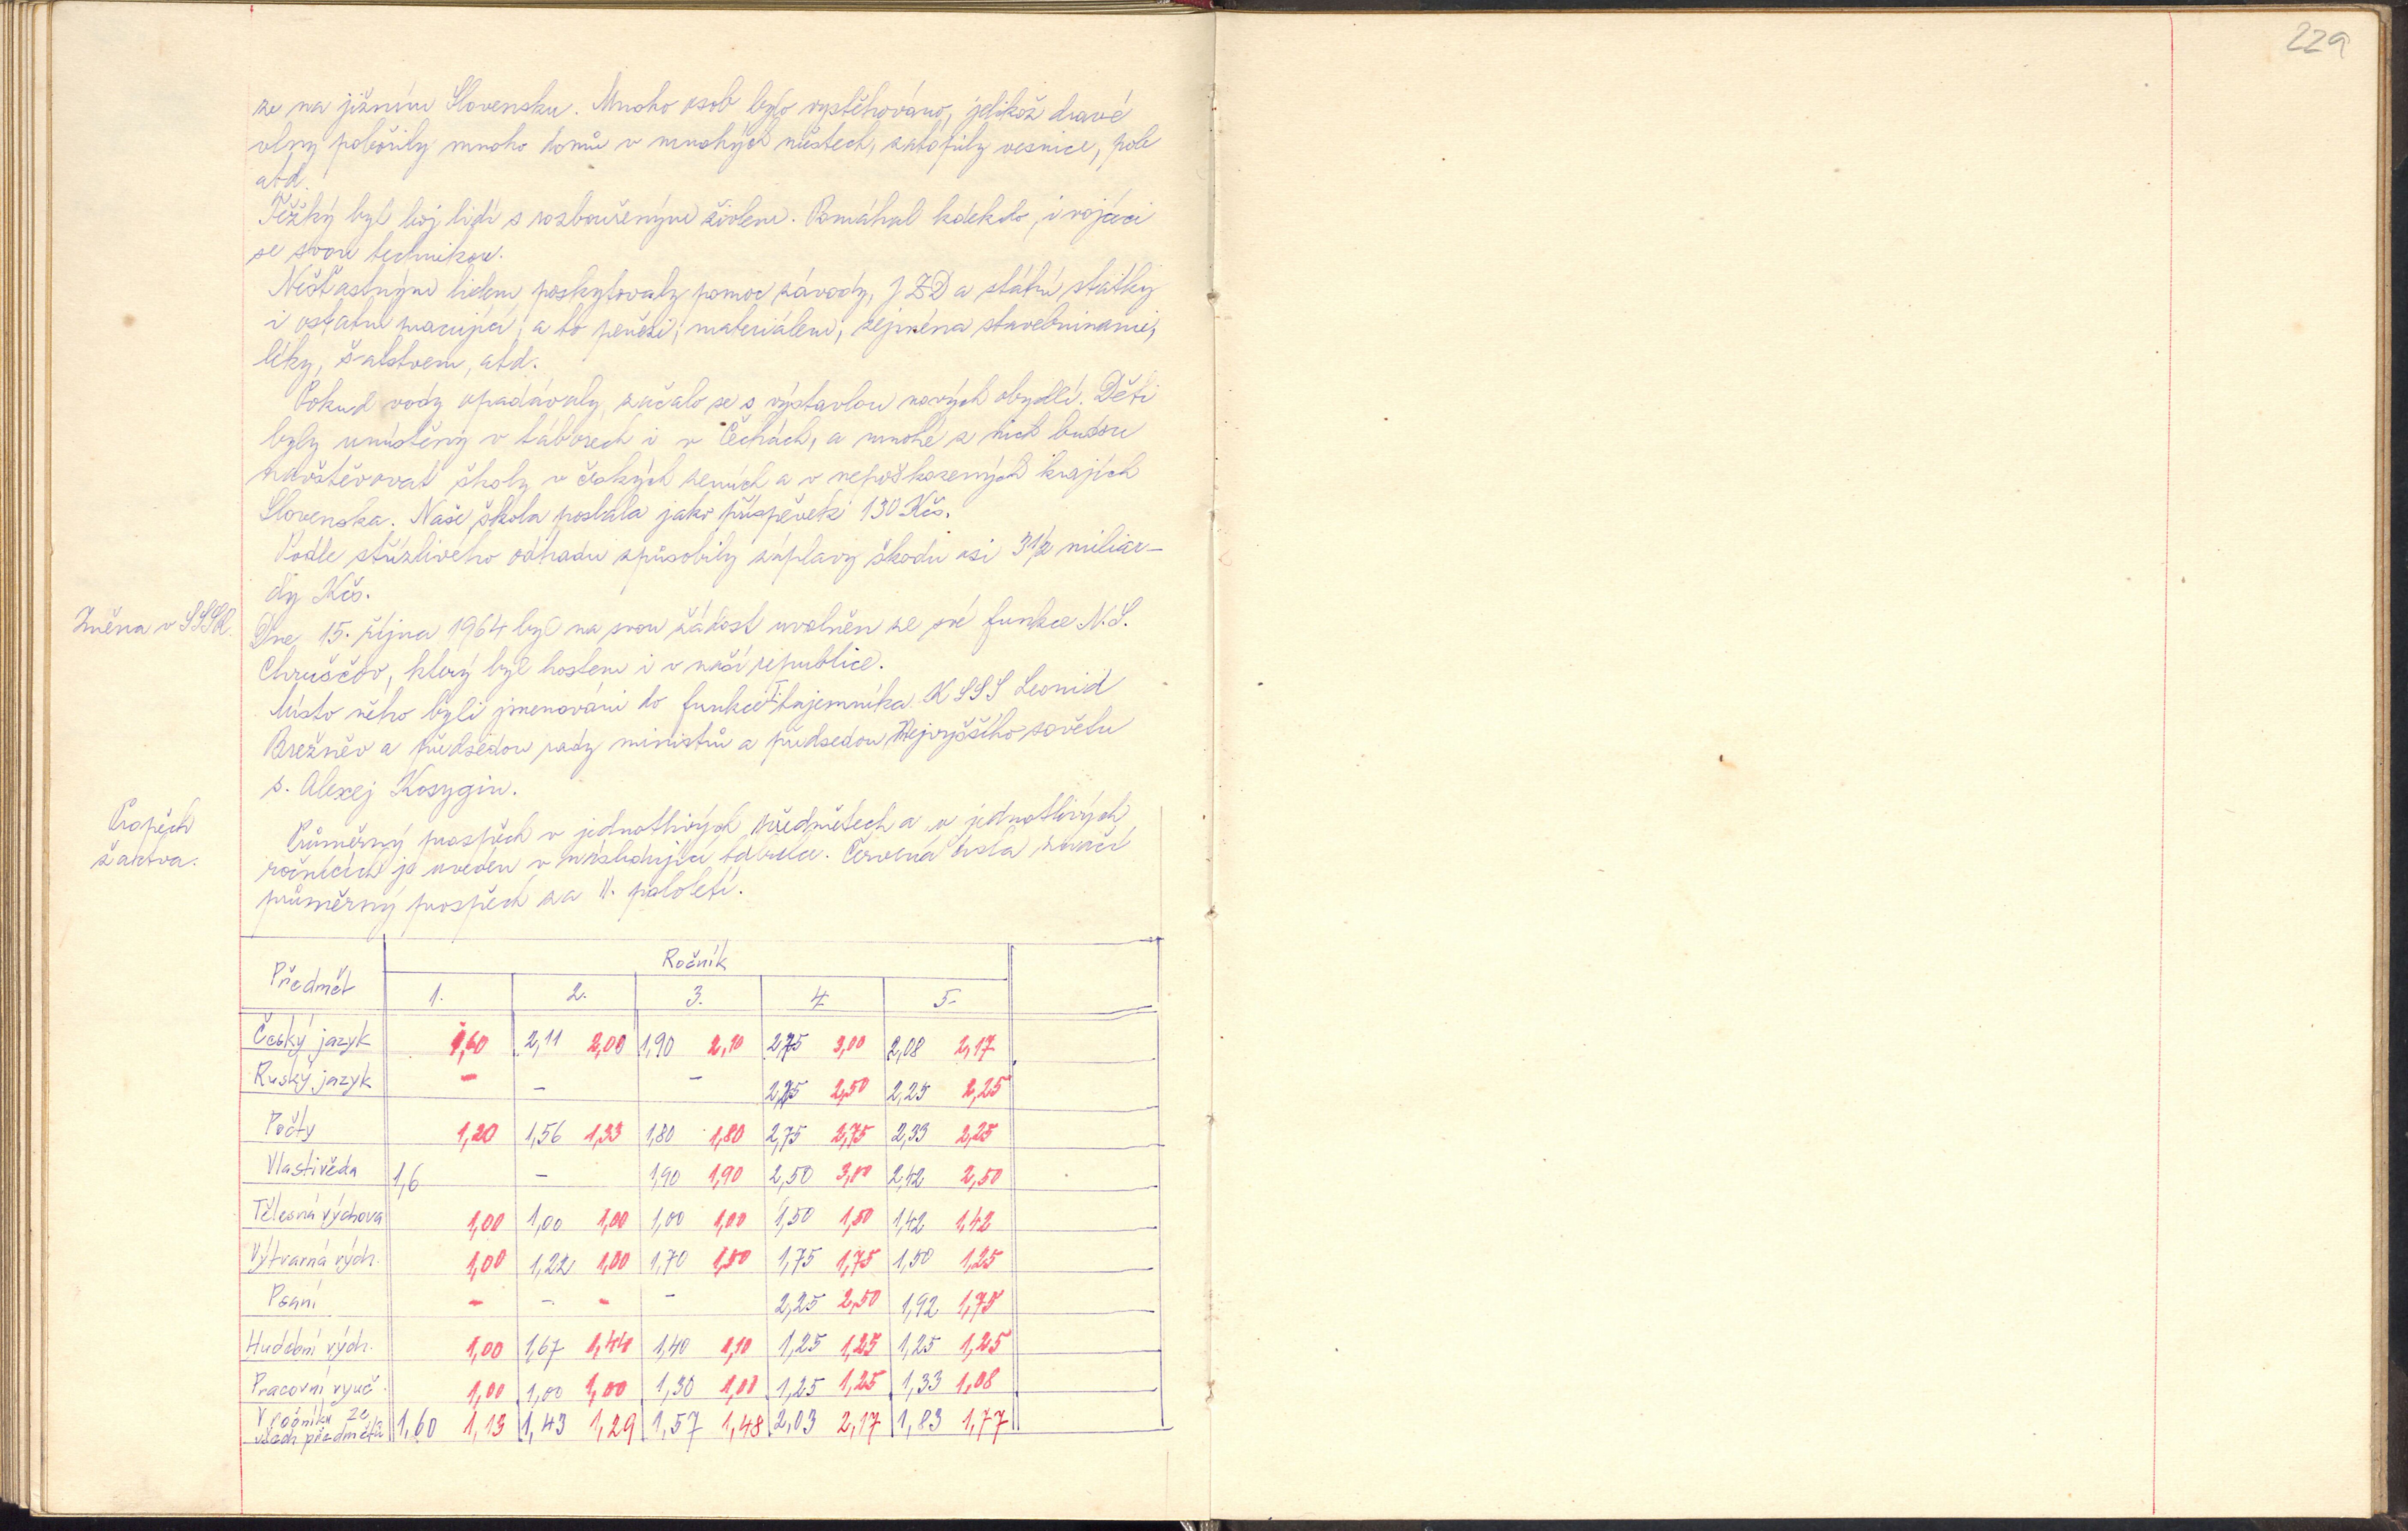 229
ze na jižním Slovensku. Mnoho osob bylo vystěhováno, jelikož dravé
vlny pobořily mnoho domů v mnohých místech, zatopily vesnice, pole
atd.
Těžký byl boj lidí s rozbouřeným živlem. Pomáhal kdekdo, i vojáci
se svou technikou.
Nešťastným lidem poskytovaly pomoc závody, JZD a státní statky
i ostatní pracující, a to penězi, materiálem, zejména stavebninami,
léky, šatstvem, atd.
Pokud vody opadávaly, začalo se s výstavbou nových obydlí. Děti
byly umístěny v táborech i v Čechách, a mnohé z nich budou
navštěvovat školy v českých zemích a v nepoškozených krajích
Slovenska. Naše škola poslala jako příspěvek 130 Kčs.
Podle střízlivého odhadu způsobily záplavy škodu asi 3 1/2 miliar-
dy Kčs.
Změna v SSSR.
Dne 15. října 1964 byl na svou žádost uvolněn ze své funkce N. S.
Chruščov, který byl hostem i v naší republice.
Místo něho byli jmenováni do funkce I. tajemníka KSSS Leonid
Brežněv a předsedou rady ministrů a předsedou Nejvyššího sovětu
s. Alexej Kosygin.
Prospěch
žactva.
Průměrný prospěch v jednotlivých předmětech a v jednotlivých
ročnících je uveden v následující tabulce. Červená čísla značí
průměrný prospěch za II. pololetí.
Předmět Ročník
1. 2. 3. 4. 5.
Český jazyk 1,60 2,11 2,00 1,90 2,10 2,75 3,00 2,08 2,17
Ruský jazyk - - - 2,25 2,50 2,25 2,25
Počty 1,20 1,56 1,33 1,80 1,80 2,75 2,75 2,33 2,25
Vlastivěda 1,6 - 1,90 1,90 2,50 3,00 2,42 2,50
Tělesná výchova 1,00 1,00 1,00 1,00 1,00 1,50 1,50 1,42 1,42
Výtvarná vých. 1,00 1,22 1,00 1,70 1,50 1,75 1,75 1,50 1,25
Psaní - - - - 2,25 2,50 1,92 1,75
Hudební vých. 1,00 1,67 1,44 1,40 1,10 1,25 1,25 1,25 1,25
Pracovní vyuč. 1,00 1,00 1,00 1,30 1,00 1,25 1,25 1,33 1,08
V ročníku ze
všech předmětů 1,60 1,13 1,43 1,29 1,57 1,48 2,03 2,17 1,83 1,77